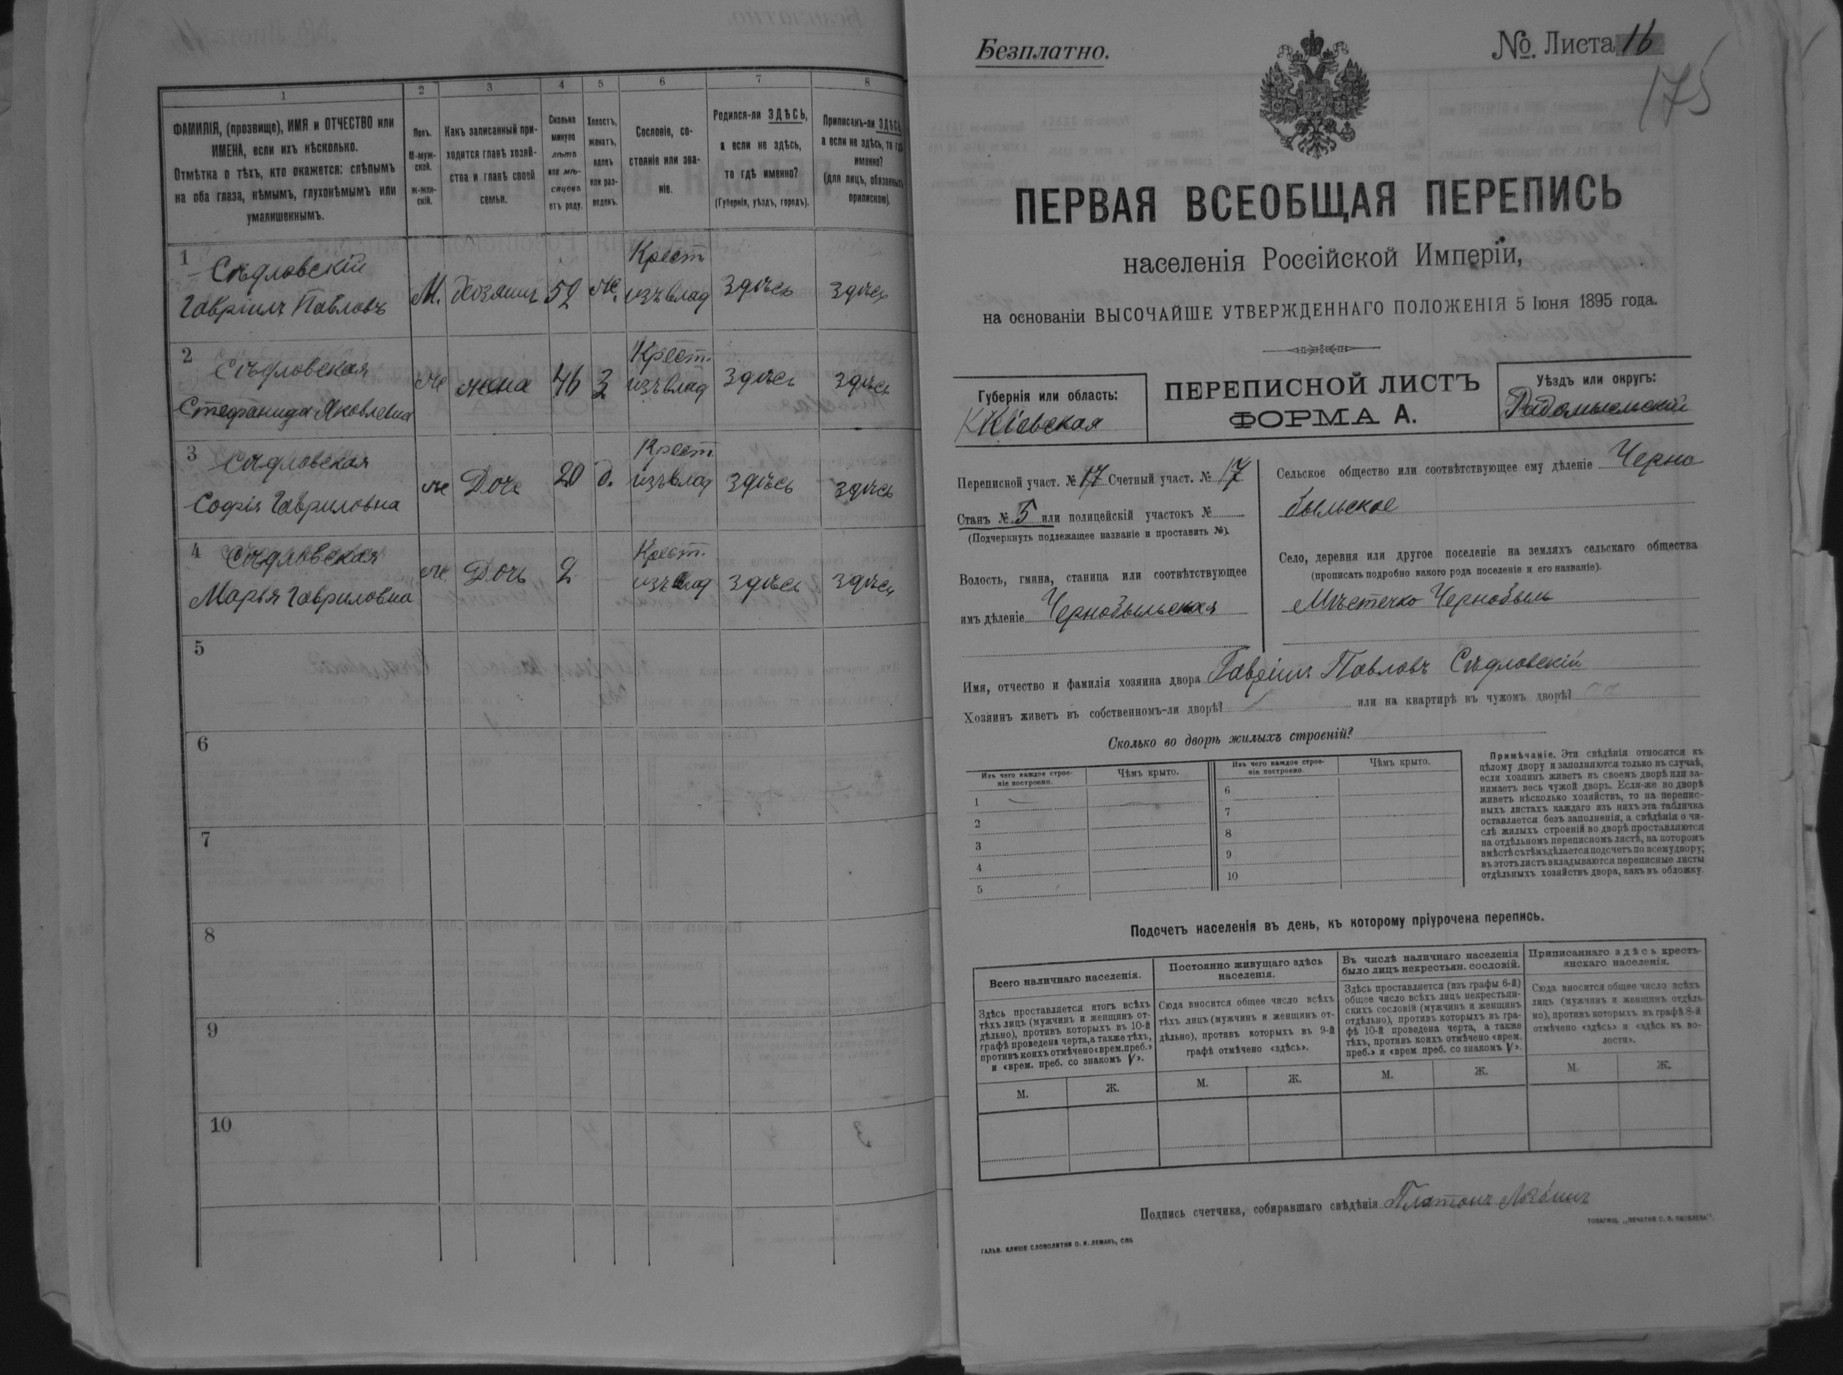 1
2
3
4
5
6
7
8
ФАМИЛІЯ, (прозвище), ИМЯ и ОТЧЕСТВО или
ИМЕНА, если ихъ нѣсколько.
Отмѣтка о тѣхъ, кто окажется: слѣпымъ
на оба глаза, нѣмымъ, глухонѣмымъ или
умалишеннымъ.
Полъ.
М-муж-
ской.
ж-жен-
скій.
Какъ записанный при-
ходится главѣ хозяй-
ства и главѣ своей
семьи.
Сколько
минуло
лѣтъ
или мѣ-
сяцевъ
отъ роду.
Холостъ,
женатъ,
вдовъ
или раз-
веденъ.
Сословіе, со-
стояніе или зва-
ніе.
Родился-ли ЗДѢСЬ,
а если не здѣсь,
то гдѣ именно?
(Губернія, уѣздъ, городъ).
Приписанъ-ли ЗДѢСЬ,
а если не здѣсь, то гдѣ
именно?
(для лицъ, обязанныхъ
припискою).
1 Сѣдловскій
Гавріилъ Павловъ
М. Хозяинъ 52 ж. Крест изъ влад здѣсь здѣсь
2 Сѣдловская
Стефанида Яковлевна
ж жена 46 3 Крест. изъ влад здѣсь здѣсь
3 Сѣдловская
Софія Гавриловна
ж Дочь 20 д. Крест изъ влад здѣсь здѣсь
4 Сѣдловская
Марья Гавриловна
ж Дочь 2 Крест. изъ влад здѣсь здѣсь
5
6
7
8
9
10
Безплатно.
№. Листа 16
175
ПЕРВАЯ ВСЕОБЩАЯ ПЕРЕПИСЬ
населенія Россійской Имперіи,
на основаніи ВЫСОЧАЙШЕ УТВЕРЖДЕННАГО ПОЛОЖЕНІЯ 5 Іюня 1895 года.
Губернія или область:
Кіевская
ПЕРЕПИСНОЙ ЛИСТЪ
ФОРМА А.
Уѣздъ или округъ:
Радомысльскій
Переписной участ. № 17 Счетный участ. № 17
Станъ № 5 или полицейскій участокъ №
(Подчеркнуть подлежащее названіе и проставить №).
Волость, гмина, станица или соотвѣтствующее
имъ дѣленіе Чернобыльская
Сельское общество или соотвѣтствующее ему дѣленіе Черно
быльское
Село, деревня или другое поселеніе на земляхъ сельскаго общества
(прописать подробно какого рода поселеніе и его названіе).
Мѣстечко Чернобыль
Имя, отчество и фамилія хозяина двора Гавріилъ Павловъ Сѣдловскій
Хозяинъ живетъ въ собственномъ-ли дворѣ? или на квартирѣ въ чужомъ дворѣ?
Сколько во дворѣ жилыхъ строеній?
Изъ чего каждое строе-
ніе построено.
Чѣмъ крыто.
Изъ чего каждое строе-
ніе построено.
Чѣмъ крыто.
1
2
3
4
5
6
7
8
9
10
Примѣчаніе. Эти свѣдѣнія относятся къ
цѣлому двору и заполняются только въ случаѣ,
если хозяинъ живетъ въ своемъ дворѣ или за-
нимаетъ весь чужой дворъ. Если-же во дворѣ
живетъ нѣсколько хозяйствъ, то на перепис-
ныхъ листахъ каждаго изъ нихъ эта табличка
оставляется безъ заполненія, а свѣдѣнія о чи-
слѣ жилыхъ строеній во дворѣ проставляются
на отдѣльномъ переписномъ листѣ, на которомъ
вмѣстѣ съ тѣмъ дѣлается подсчетъ по всему двору;
въ этотъ листъ вкладываются переписные листы
отдѣльныхъ хозяйствъ двора, какъ въ обложку.
Подсчетъ населенія въ день, къ которому пріурочена перепись.
Всего наличнаго населенія.
Здѣсь проставляется итогъ всѣхъ
тѣхъ лицъ (мужчинъ и женщинъ от-
дѣльно), противъ которыхъ въ 10-й
графѣ проведена черта, а также тѣхъ,
противъ коихъ отмѣчено «врем. преб.»
и «врем. преб. со знакомъ V».
Постоянно живущаго здѣсь
населенія.
Сюда вносится общее число всѣхъ
тѣхъ лицъ (мужчинъ и женщинъ от-
дѣльно), противъ которыхъ въ 9-й
графѣ отмѣчено «здѣсь».
Въ числѣ наличнаго населенія
было лицъ некрестьян. сословій.
Здѣсь проставляется (изъ графы 6-й)
общее число всѣхъ лицъ некрестьян-
скихъ сословій (мужчинъ и женщинъ
отдѣльно), противъ которыхъ въ гра-
фѣ 10-й проведена черта, а также
тѣхъ, противъ коихъ отмѣчено «врем.
преб.» и «врем преб. со знакомъ V».
Приписаннаго здѣсь кресть-
янскаго населенія.
Сюда вносится общее число всѣхъ
лицъ (мужчинъ и женщинъ отдѣль-
но), противъ которыхъ въ графѣ 8-й
отмѣчено «здѣсь» и «здѣсь въ во-
лости».
М. Ж. М. Ж. М. Ж. М. Ж.
Подпись счетчика, собиравшаго свѣдѣнія Платонъ
ГАЛЬВ. КЛИШЕ СЛОВОЛИТНИ О. И. ЛЕМАНЪ, СПБ
ТОВАРИЩ. „ПЕЧАТНЯ С. П. ЯКОВЛЕВА".